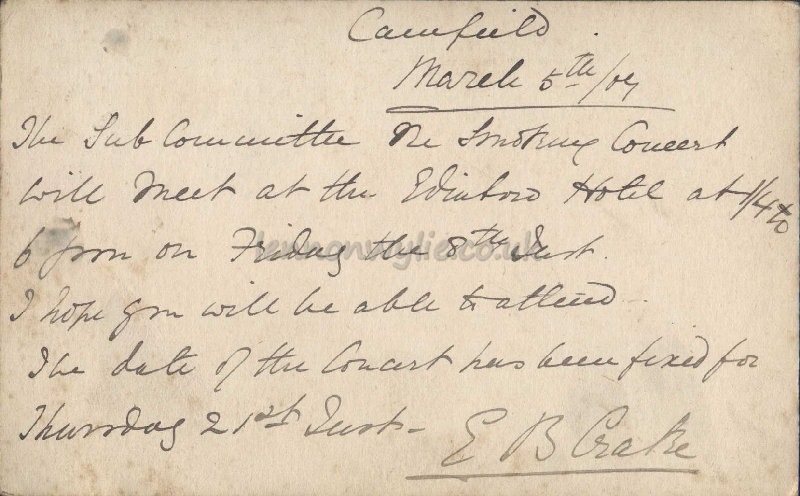 Camfield.
March 5th/07
The Sub Committee Re Smoking Concert
will meet at the Edinboro Hotel at 1/4 to
6 pm on Friday the 8th Inst.
I hope you will be able to attend.
The date of the Concert has been fixed for
Thursday 21st Inst-
E B Crake
lennonwylie.co.uk